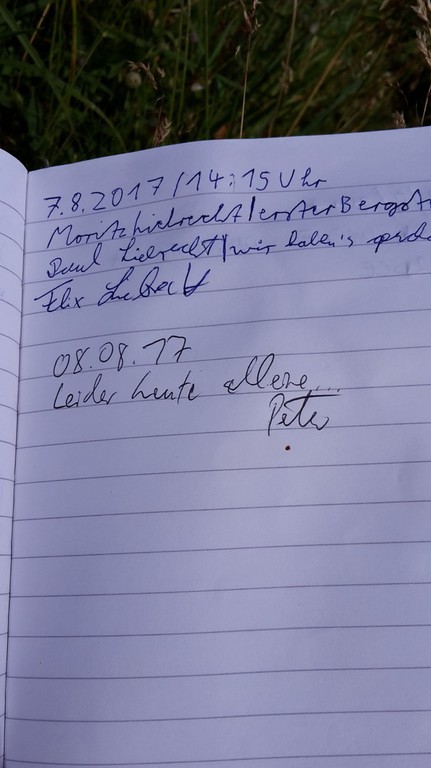 7.8.2017/14:15 Uhr
Moritz Liebrecht/erster Bergst
Paul Liebrecht/wir haben's gesch
Felix
08.08.17
Leider heute alleine...
Peter